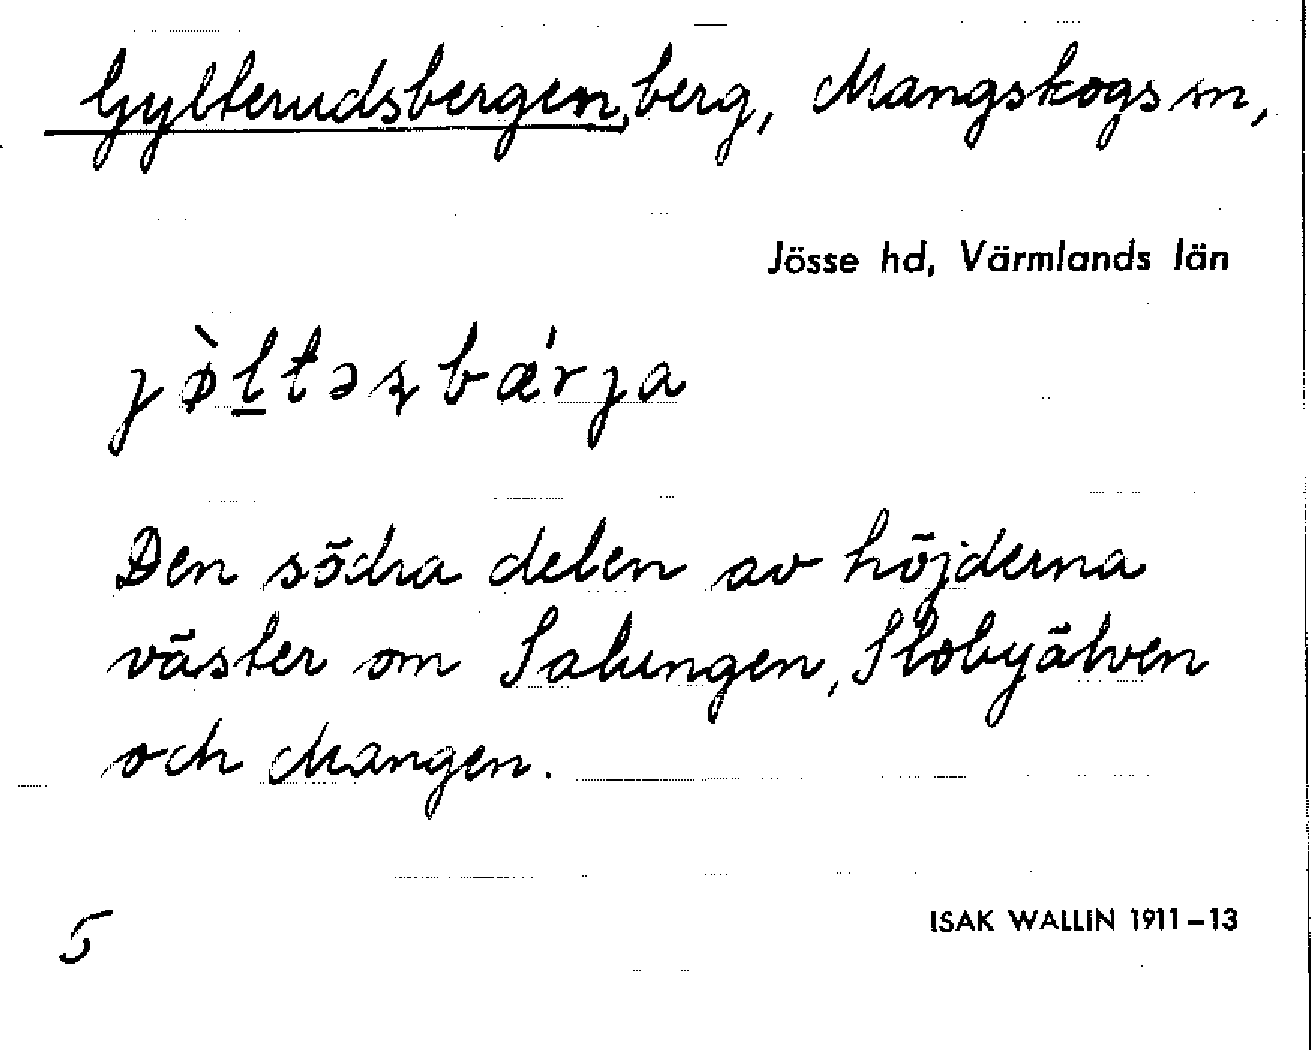 Gylterudsbergen, berg, Mangskogs sn,
Jösse hd, Värmlands län
jø̀l̲təʂbǽrja
Den södra delen av höjderna
väster om Salungen, Slobyälven
och Mangen.
5
ISAK WALLIN 1911–13